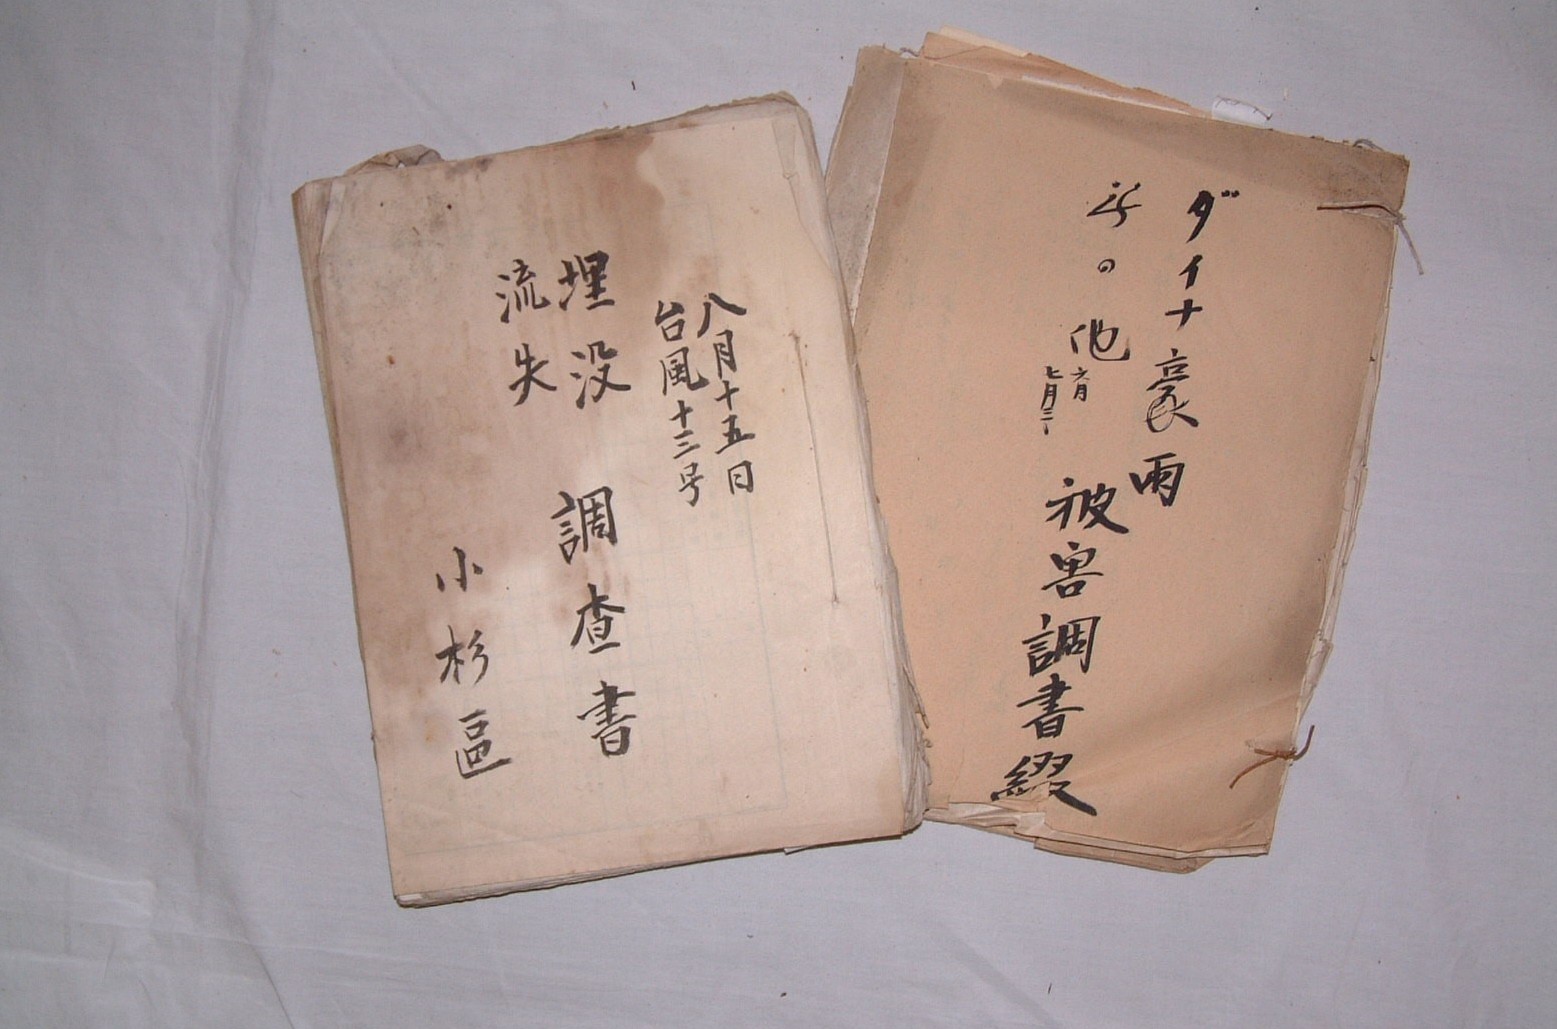 ダイナ豪雨
その他
六月
七月
被害調書綴
八月十五日
台風十三号
埋没
流失
調査書
小杉區